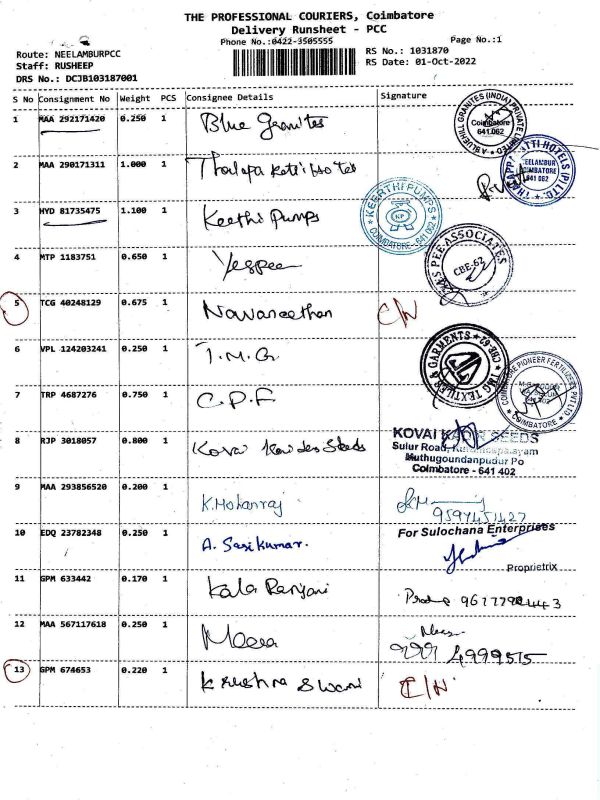 THE PROFESSIONAL COURIERS, Coimbatore
Delivery Runsheet - PCC
Phone No.:0422-3505555
Page No.:1
Route: NEELAMBURPCC
RS No.: 1031870
Staff: RUSHEEP
RS Date: 01-Oct-2022
DRS No.: DCJB103187001
S No Consignment No Weight PCS Consignee Details Signature
1 MAA 292171420 0.250 1 Blue Granites
A BLUEHILL GRANITES (INDIA) PRIVATE LIMITED
Coimbatore
641 062
2 MAA 290171311 1.000 1
HOTELS (P) LTD
NEELAMBUR
COIMBATORE
641 062
3 HYD 81735475 1.100 1 Keethi Pumps
KEERTHI PUMPS
KP
COIMBATORE - 641 062
4 MTP 1183751 0.650 1 Yespee
PEE-ASSOCIATES
CBE-62
5 TCG 40248129 0.675 1 Navaneethan C/N
6 VPL 124203241 0.250 1 T.M.G.
TMG TEXTILES & GARMENTS CBE-62
7 TRP 4687276 0.750 1 C.P.F
COIMBATORE PIONEER FERTILIZERS PVT LTD
COIMBATORE
8 RJP 3018057 0.800 1 Kovai Seeds
KOVAI KADIR SEEDS
Sulur Road,
Muthugoundanpudur Po
Coimbatore - 641 402
9 MAA 293856520 0.200 1 K.Mohanraj
9597451427
10 EDQ 23782348 0.250 1 A. Sasikumar.
For Sulochana Enterprises
Proprietrix
11 GPM 633442 0.170 1 Kala Ranjani
12 MAA 567117618 0.250 1 Meera
4999515
13 GPM 674653 0.220 1 Krushna Swami C/N